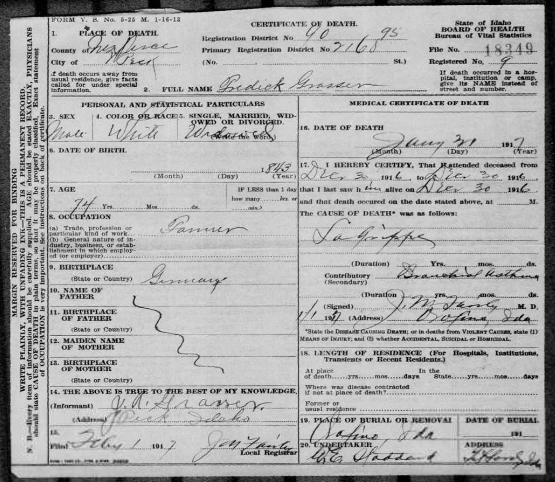 FORM V. S. No. 5-25 M. 1-16-12
CERTIFICATE OF DEATH.
State of Idaho
BOARD OF HEALTH
Bureau of Vital Statistics
1. PLACE OF DEATH.
Registration District No. 90 95
County of Nez Perce
Primary Registration District No. 2168
File No. 18349
City of Peck
(No. St.)
Registered No. 9
If death occurs away from usual residence, give facts called for under special information.
2. FULL NAME Fredick Grasser
If death occurred in a hospital, institution or camp, give its NAME instead of street and number.
PERSONAL AND STATISTICAL PARTICULARS
3. SEX
4. COLOR OR RACE
5. SINGLE, MARRIED, WIDOWED OR DIVORCED.
(Write the word.)
Male White Widowed
6. DATE OF BIRTH.
1843
(Month) (Day) (Year)
7. AGE
IF LESS than 1 day how many hrs. or min.
74 Yrs. Mos. ds.
8. OCCUPATION
(a) Trade, profession or particular kind of work
(b) General nature of industry, business, or establishment in which employed (or employer)
9. BIRTHPLACE
(State or Country) Germany
10. NAME OF FATHER
11. BIRTHPLACE OF FATHER
(State or Country)
12. MAIDEN NAME OF MOTHER
13. BIRTHPLACE OF MOTHER
(State or Country)
14. THE ABOVE IS TRUE TO THE BEST OF MY KNOWLEDGE.
(Informant) Grasser
(Address) Peck Idaho
15.
Filed Feby 1 1917
Local Registrar
MEDICAL CERTIFICATE OF DEATH
16. DATE OF DEATH
Jany 31 1917
(Month) (Day) (Year)
17. I HEREBY CERTIFY, That I attended deceased from
Dec 30 1916 to Dec 30 1916
that I last saw him alive on Dec 30 1916
and that death occurred on the date stated above, at M.
The CAUSE OF DEATH* was as follows:
La Grippe
(Duration) Yrs. mos. ds.
Contributory Bronchial Asthma
(Secondary)
(Duration) Yrs. mos. ds.
(Signed) M. D.
(Address) Orofino Ida
*State the DISEASE CAUSING DEATH; or in deaths from VIOLENT CAUSES, state (1) MEANS OF INJURY; and (2) whether ACCIDENTAL, SUICIDAL or HOMICIDAL.
18. LENGTH OF RESIDENCE (For Hospitals, Institutions, Transients or Recent Residents.)
At place of death yrs. mos. days
In the State yrs. mos. days
Where was disease contracted if not at place of death?
Former or usual residence
19. PLACE OF BURIAL OR REMOVAL
DATE OF BURIAL
Orofino Ida
191
20. UNDERTAKER
ADDRESS
MARGIN RESERVED FOR BINDING
WRITE PLAINLY, WITH UNFADING INK—THIS IS A PERMANENT RECORD.